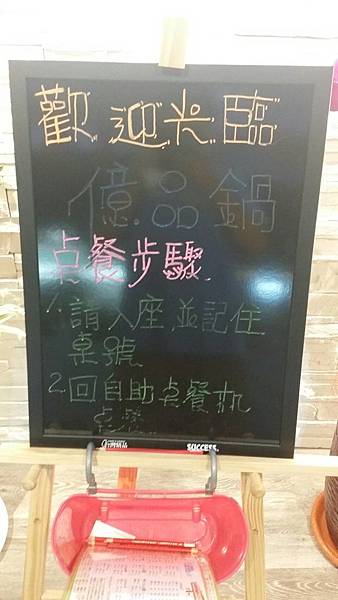 歡迎光臨
億品鍋
点餐步驟
1.請入座,並記住
桌號
2.回自助点餐机
点餐
SUCCESS.